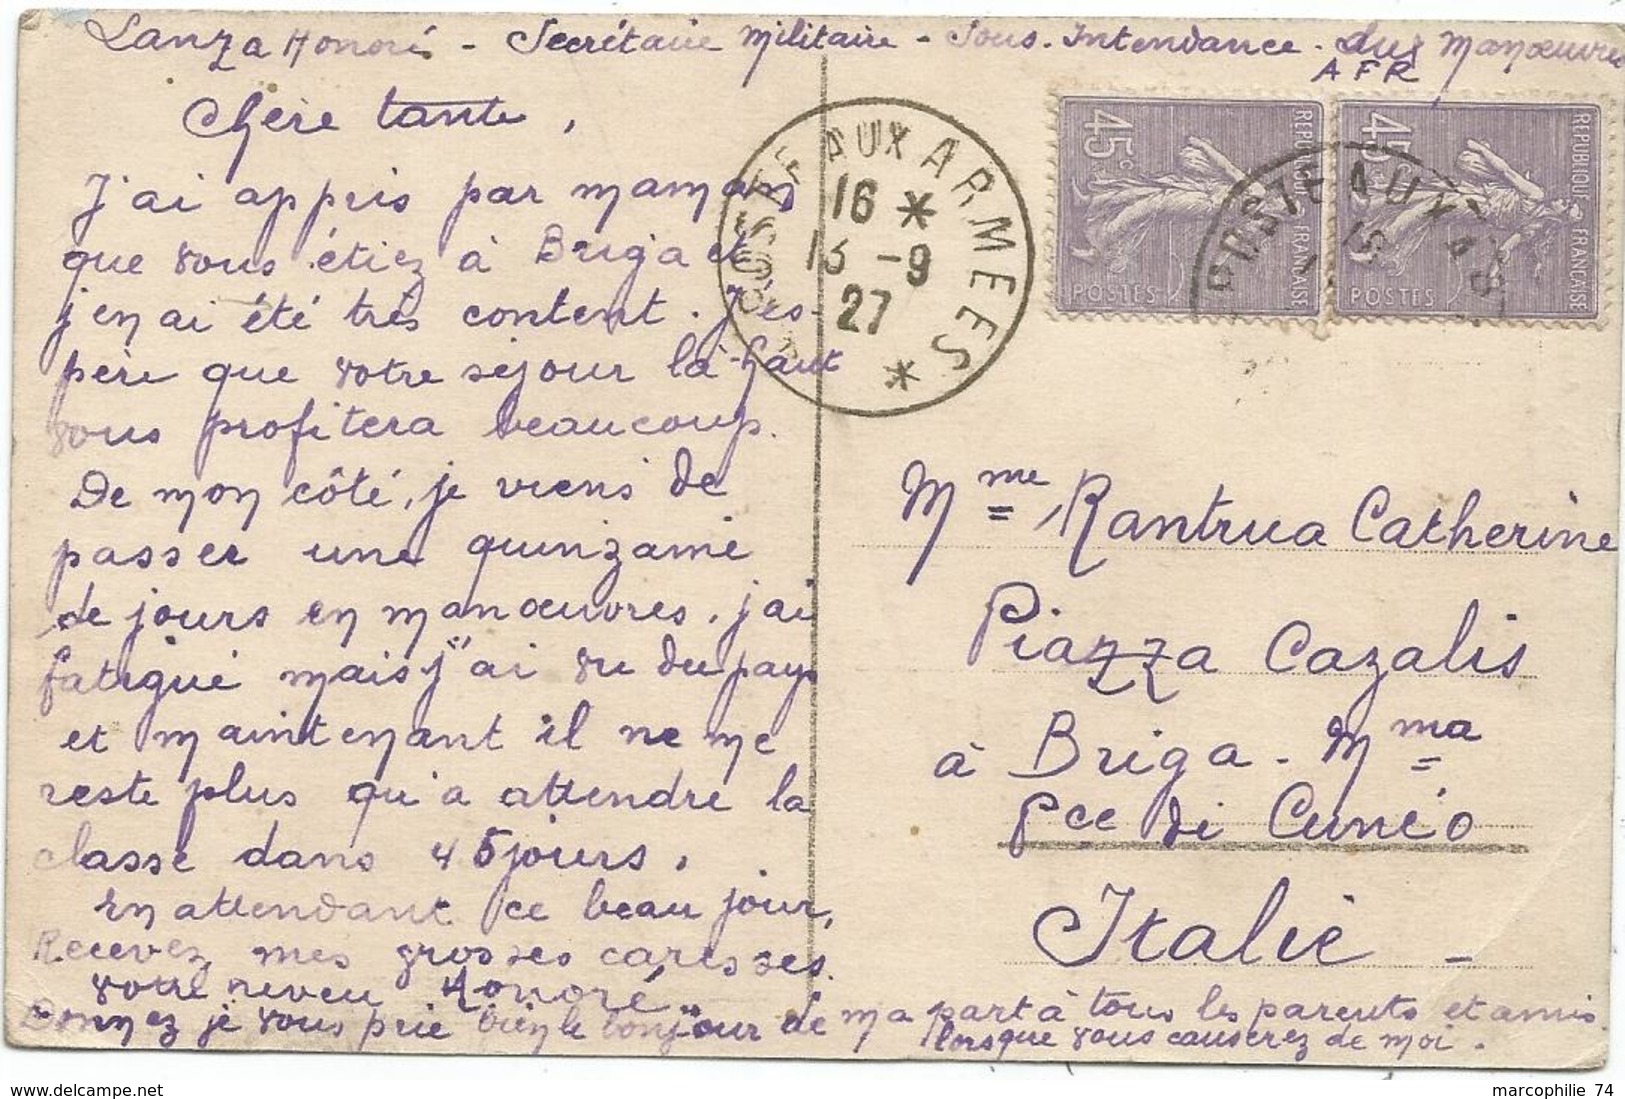 Lanza Honoré - Secrétaire Militaire - Sous-Intendance - des Manœuvres
AFR
Chère tante,
J'ai appris par maman
que vous étiez à Briga et
j'en ai été très content. J'es-
père que votre séjour là-haut
vous profitera beaucoup.
De mon côté, je viens de
passer une quinzaine
de jours en manœuvres. j'ai
fatigué mais j'ai vu du pays
et maintenant il ne me
reste plus qu'a attendre la
classe dans 45 jours.
En attendant ce beau jour,
Recevez mes grosses caresses.
votre neveu Honoré
Donnez je vous prie bien le bonjour de ma part à tous les parents et amis
lorsque vous causerez de moi.
POSTE AUX ARMEES
16 *
13 -9
27
*
45c
REPUBLIQUE FRANÇAISE
POSTES
45c
REPUBLIQUE FRANÇAISE
POSTES
POSTE AUX
Mme Rantrua Catherine
Piazza Cazalis
à Briga - Mma
Pce di Cunéo
Italie -
marcophilie 74